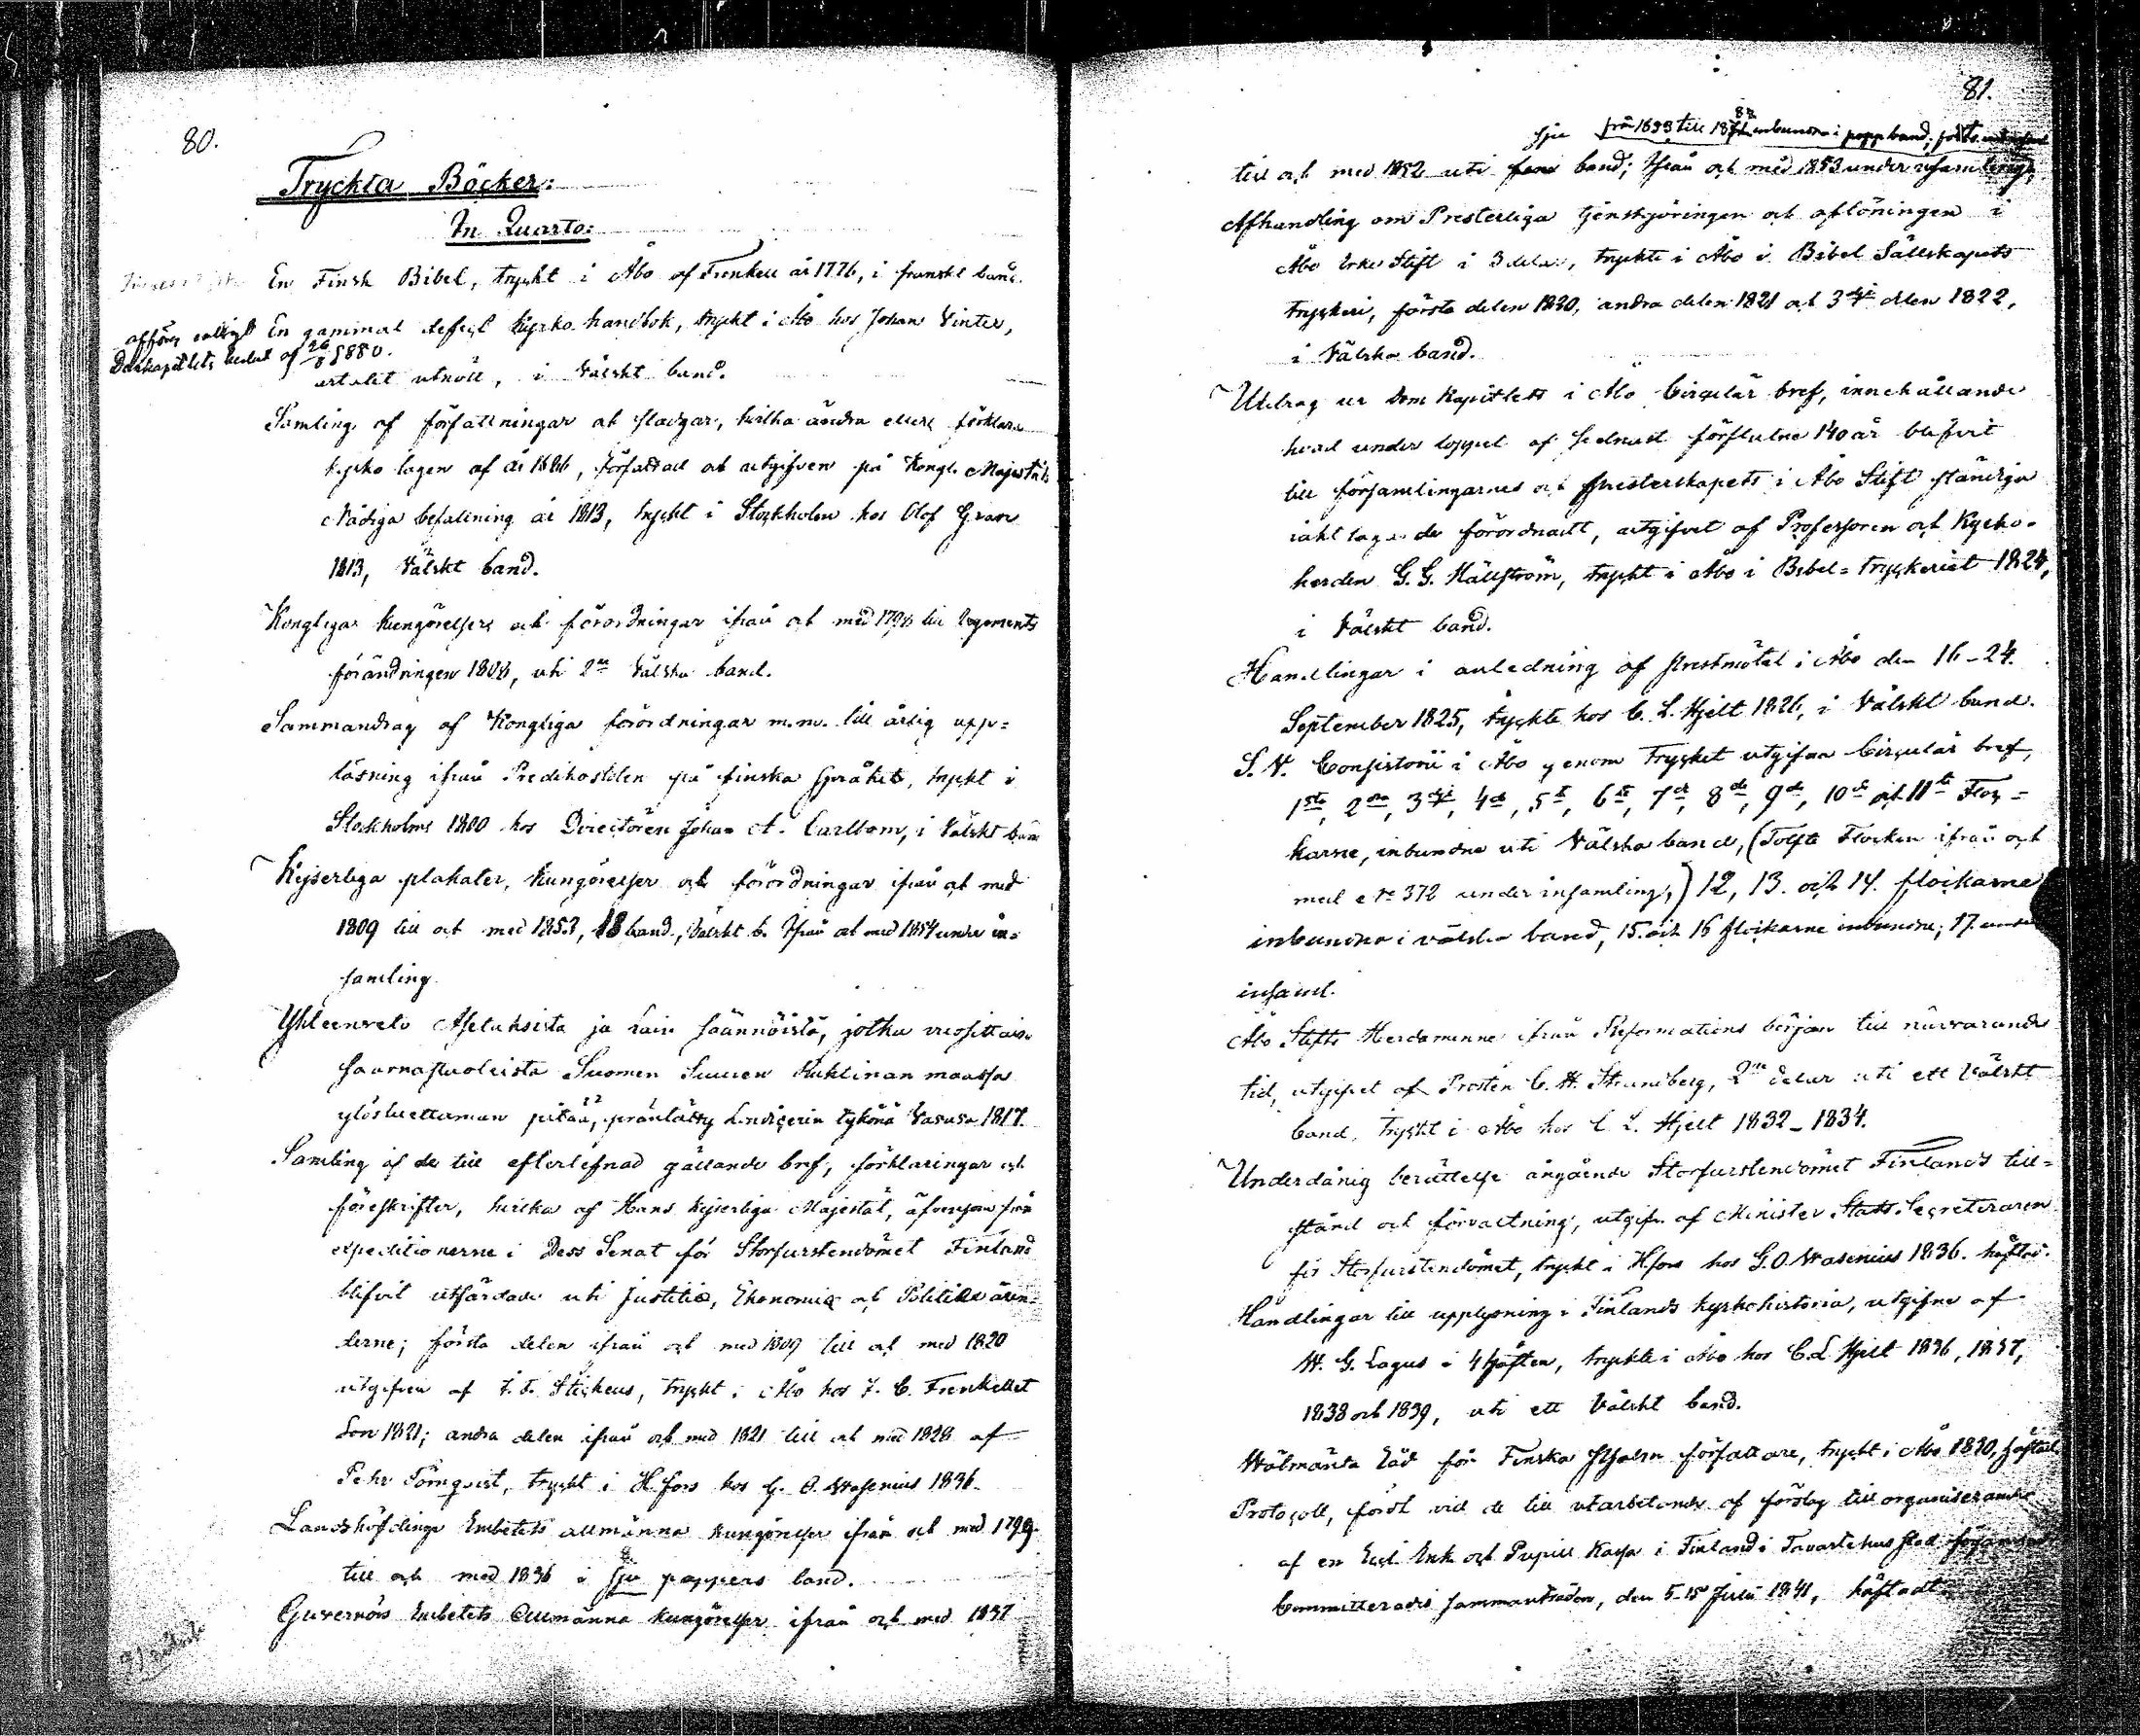 80.
Tryckta Böcker:
In Quarto:
En Finsk Bibel, tryckt i Åbo af Frenkell år 1776, i franskt band.
afföres enligt
Domkapitlets beslut af 26/8 1880.
En gammal defect Kyrko handbok, tryckt i Åbo hos Johan Winter,
utnött, i Wälskt band.
Samling af författningar och stadgar, hvilka ändra eller förklara
kyrko lagen af år 1686, författad och utgifven på Kongl. Majestäts
Nådiga befallning år 1813, tryckt i Stockholm hos Olof Grahn
1813, Wälskt band.
Kongliga kungörelser och förordningar ifrån och med 1798 till Regements
förändringen 1808, uti 2ne Wälska band.
Sammandrag af Kongliga förordningar m.m. till årlig upp=
läsning ifrån Predikostolen på finska Språket, tryckt i
Stockholm 1800 hos Directören Johan A. Carlbom, i Wälskt band
Kejserliga plakater, Kungörelser och förordningar ifrån och med
1809 till och med 1853, 18 band, Wälskt b. Ifrån och med 1854 under in=
samling.
Yhteenveto Asetuksista ja Lain säännöistä, jotka vuosittain
saarnastuolista Suomen Suuren Ruhtinan maassa
ylösluettaman pitää, präntätty Londicerin tykönä Vasasa 1817.
Samling af de till efterlefnad gällande bref, förklaringar och
föreskrifter, hvilka af Hans Kejserliga Majestät, äfvensom från
expeditionerne i Dess Senat för Storfurstendömet Finland
blifvit utfärdade uti Justitiæ, Ekonomiæ och Politiæ ären=
derne; första delen ifrån och med 1809 till och med 1820
utgifven af tryckt i Åbo hos J. C. Frenckell et
Son 1821; andra delen ifrån och med 1821 till och med 1828 af
Pehr Törnqvist, tryckt i H.fors hos G. O. Wasenius 1836.
Landshöfdinge Embetets allmänna kungörelser ifrån och med 1799
till och med 1836 i sju pappers band.
Guvernörs Embetets Allmänna kungörelser ifrån och med 1837
81.
sju från 1853 till 18 inbundna i papp band,
till och med 1852 uti band; Ifrån och med 1853 under insamling,
Afhandling om Presterliga tjenstgöringen och aflöningen i
Åbo Erke Stift i 3 delar, tryckte i Åbo i Bibel Sällskapets
tryckeri, första delen 1820, andra delen 1821 och 3dje delen 1822,
i Wälska band.
Utdrag ur Dom Kapitlets i Åbo Circulär bref, innehållande
hvad under loppet af sednast förflutne 140 år blifvit
till församlingarnes och Presterskapets i Åbo Stift ständiga
iakttagande förordnadt, utgifvet af Professoren och Kyrko-
herden G. G. Hällström, tryckt i Åbo i Bibel=tryckeriet 1824,
i Wälskt band.
Handlingar i anledning af prestmötet i Åbo den 16-24.
September 1825, tryckte hos C. L. Hjelt 1826, i Wälskt band.
S. V. Consistorii i Åbo genom Trycket utgifna Circulär bref,
1sta, 2dra, 3dje, 4de, 5te, 6te, 7de, 8de, 9de, 10de och 11te Floc=
karne, inbundne uti Wälska band, (Tolfte Flocken ifrån och
med No 372 under insamling,) 12, 13. och 14. flockarne
inbundna i välska band, 15. och 16 flockarne inbundna; 17. under
insaml.
Åbo Stifts Herdaminne ifrån Reformations början till närvarande
tid, utgifvet af Prosten C. H. Strandberg, 2ne delar uti ett Wälskt
band, tryckt i Åbo hos C. L. Hjelt 1832-1834.
Underdånig berättelse angående Storfurstendömet Finlands till=
stånd och förvaltning, utgifven af Minister Stats Secreteraren
för Storfurstendömet, tryckt i H.fors hos G. O. Wasenius 1836. häftad.
Handlingar till upplysning i Finlands kyrkohistoria, utgifne af
W. G. Lagus i 4 häften, tryckte i Åbo hos C. L. Hjelt 1836, 1837,
1838 och 1839, uti ett Wälskt band.
Wälmänta Råd för Finska författare, tryckt i Åbo 1830, häftad.
Protocoll, fördt vid de till utarbetande af förslag till organiserande
af en Eccl. Enk och Pupill Kassa i Finland i Tavastehus stad församlade
Committerades sammanträden, den 5-15 Julii 1841, häftadt.